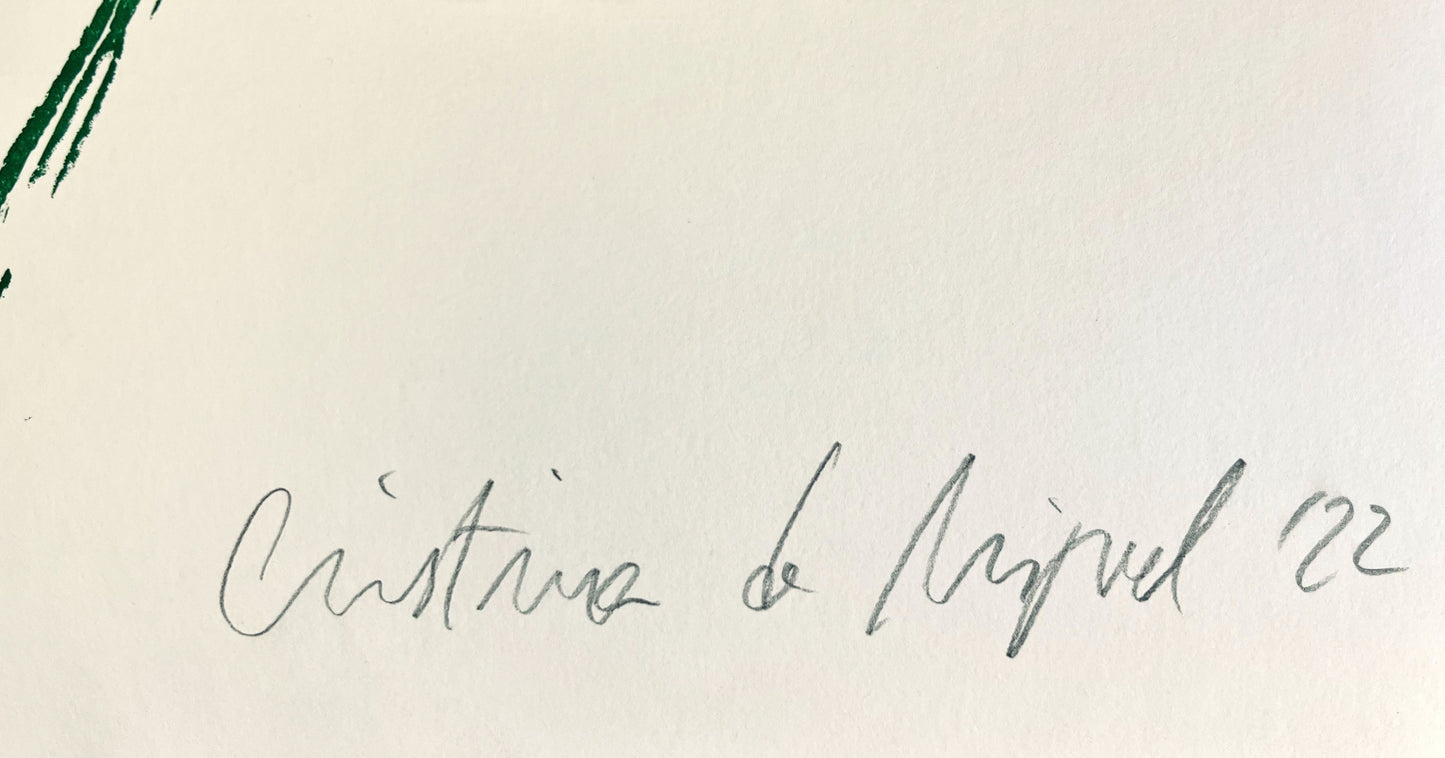 Cristina de Miguel '22